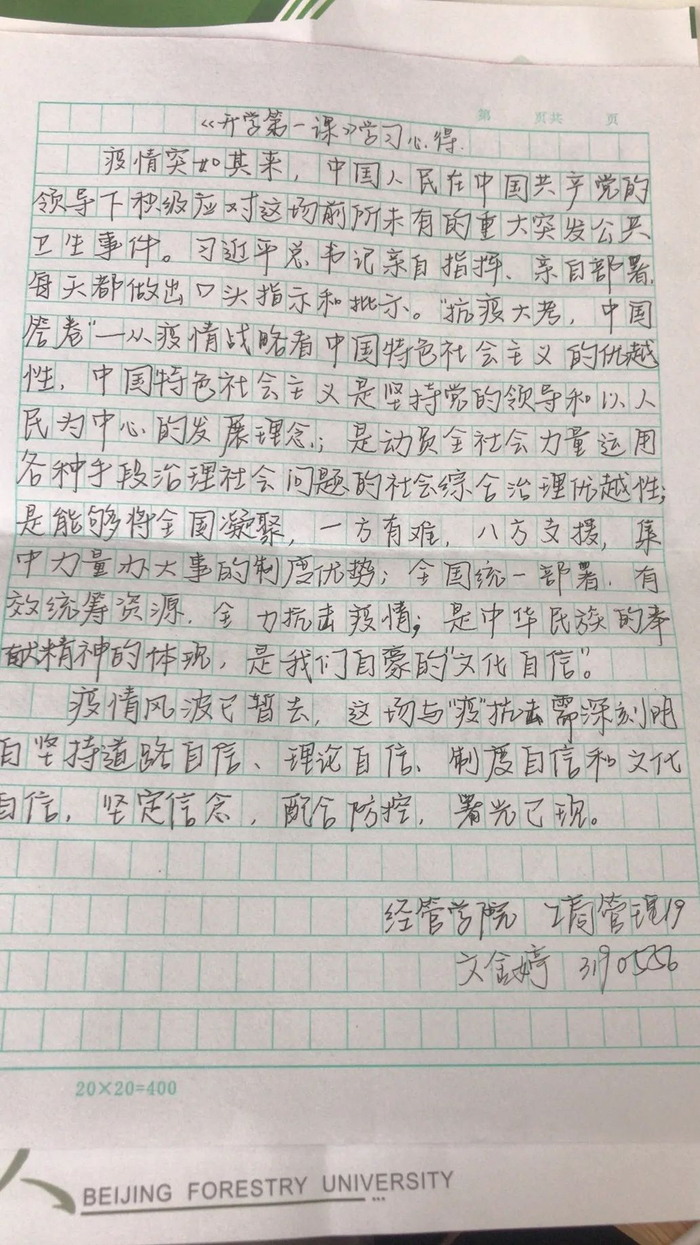 第 页共 页
《开学第一课》学习心得.
疫情突如其来，中国人民在中国共产党的
领导下积极应对这场前所未有的重大突发公共
卫生事件。习近平总书记亲自指挥、亲自部署，
每天都做出口头指示和批示。"抗疫大考，中国
答卷"—从疫情战略看中国特色社会主义的优越
性，中国特色社会主义是坚持党的领导和以人
民为中心的发展理念；是动员全社会力量运用
各种手段治理社会问题的社会综合治理优越性；
是能够将全国凝聚，一方有难，八方支援，集
中力量办大事的制度优势；全国统一部署，有
效统筹资源，全力抗击疫情；是中华民族的奉
献精神的体现，是我们自豪的"文化自信"。
疫情风波已暂去，这场与"疫"抗击需深刻明
白坚持道路自信、理论自信、制度自信和文化
自信，坚定信念，配合防控，曙光已现。
经管学院 工商管理19
文金婷 3190556
20×20=400
BEIJING FORESTRY UNIVERSITY